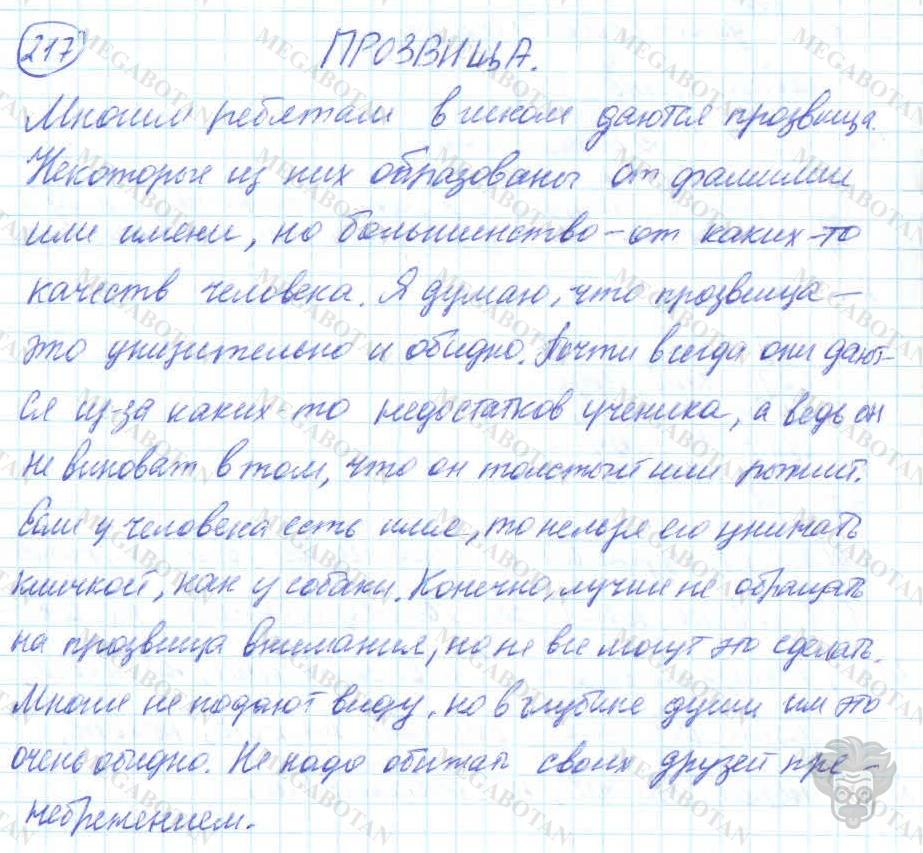 217
ПРОЗВИЩА.
Многим ребятам в школе даются прозвища.
Некоторые из них образованы от фамилии
или имени, но большинство – от каких-то
качеств человека. Я думаю, что прозвища –
это унизительно и обидно. Почти всегда они дают-
ся из-за каких-то недостатков ученика, а ведь он
не виноват в том, что он толстый или рыжий.
Если у человека есть имя, то нельзя его унижать
кличкой, как у собаки. Конечно, лучше не обращать
на прозвища внимания, но не все могут это сделать.
Многие не подают виду, но в глубине души им это
очень обидно. Не надо обижать своих друзей пре-
небрежением.
MEGABOTAN